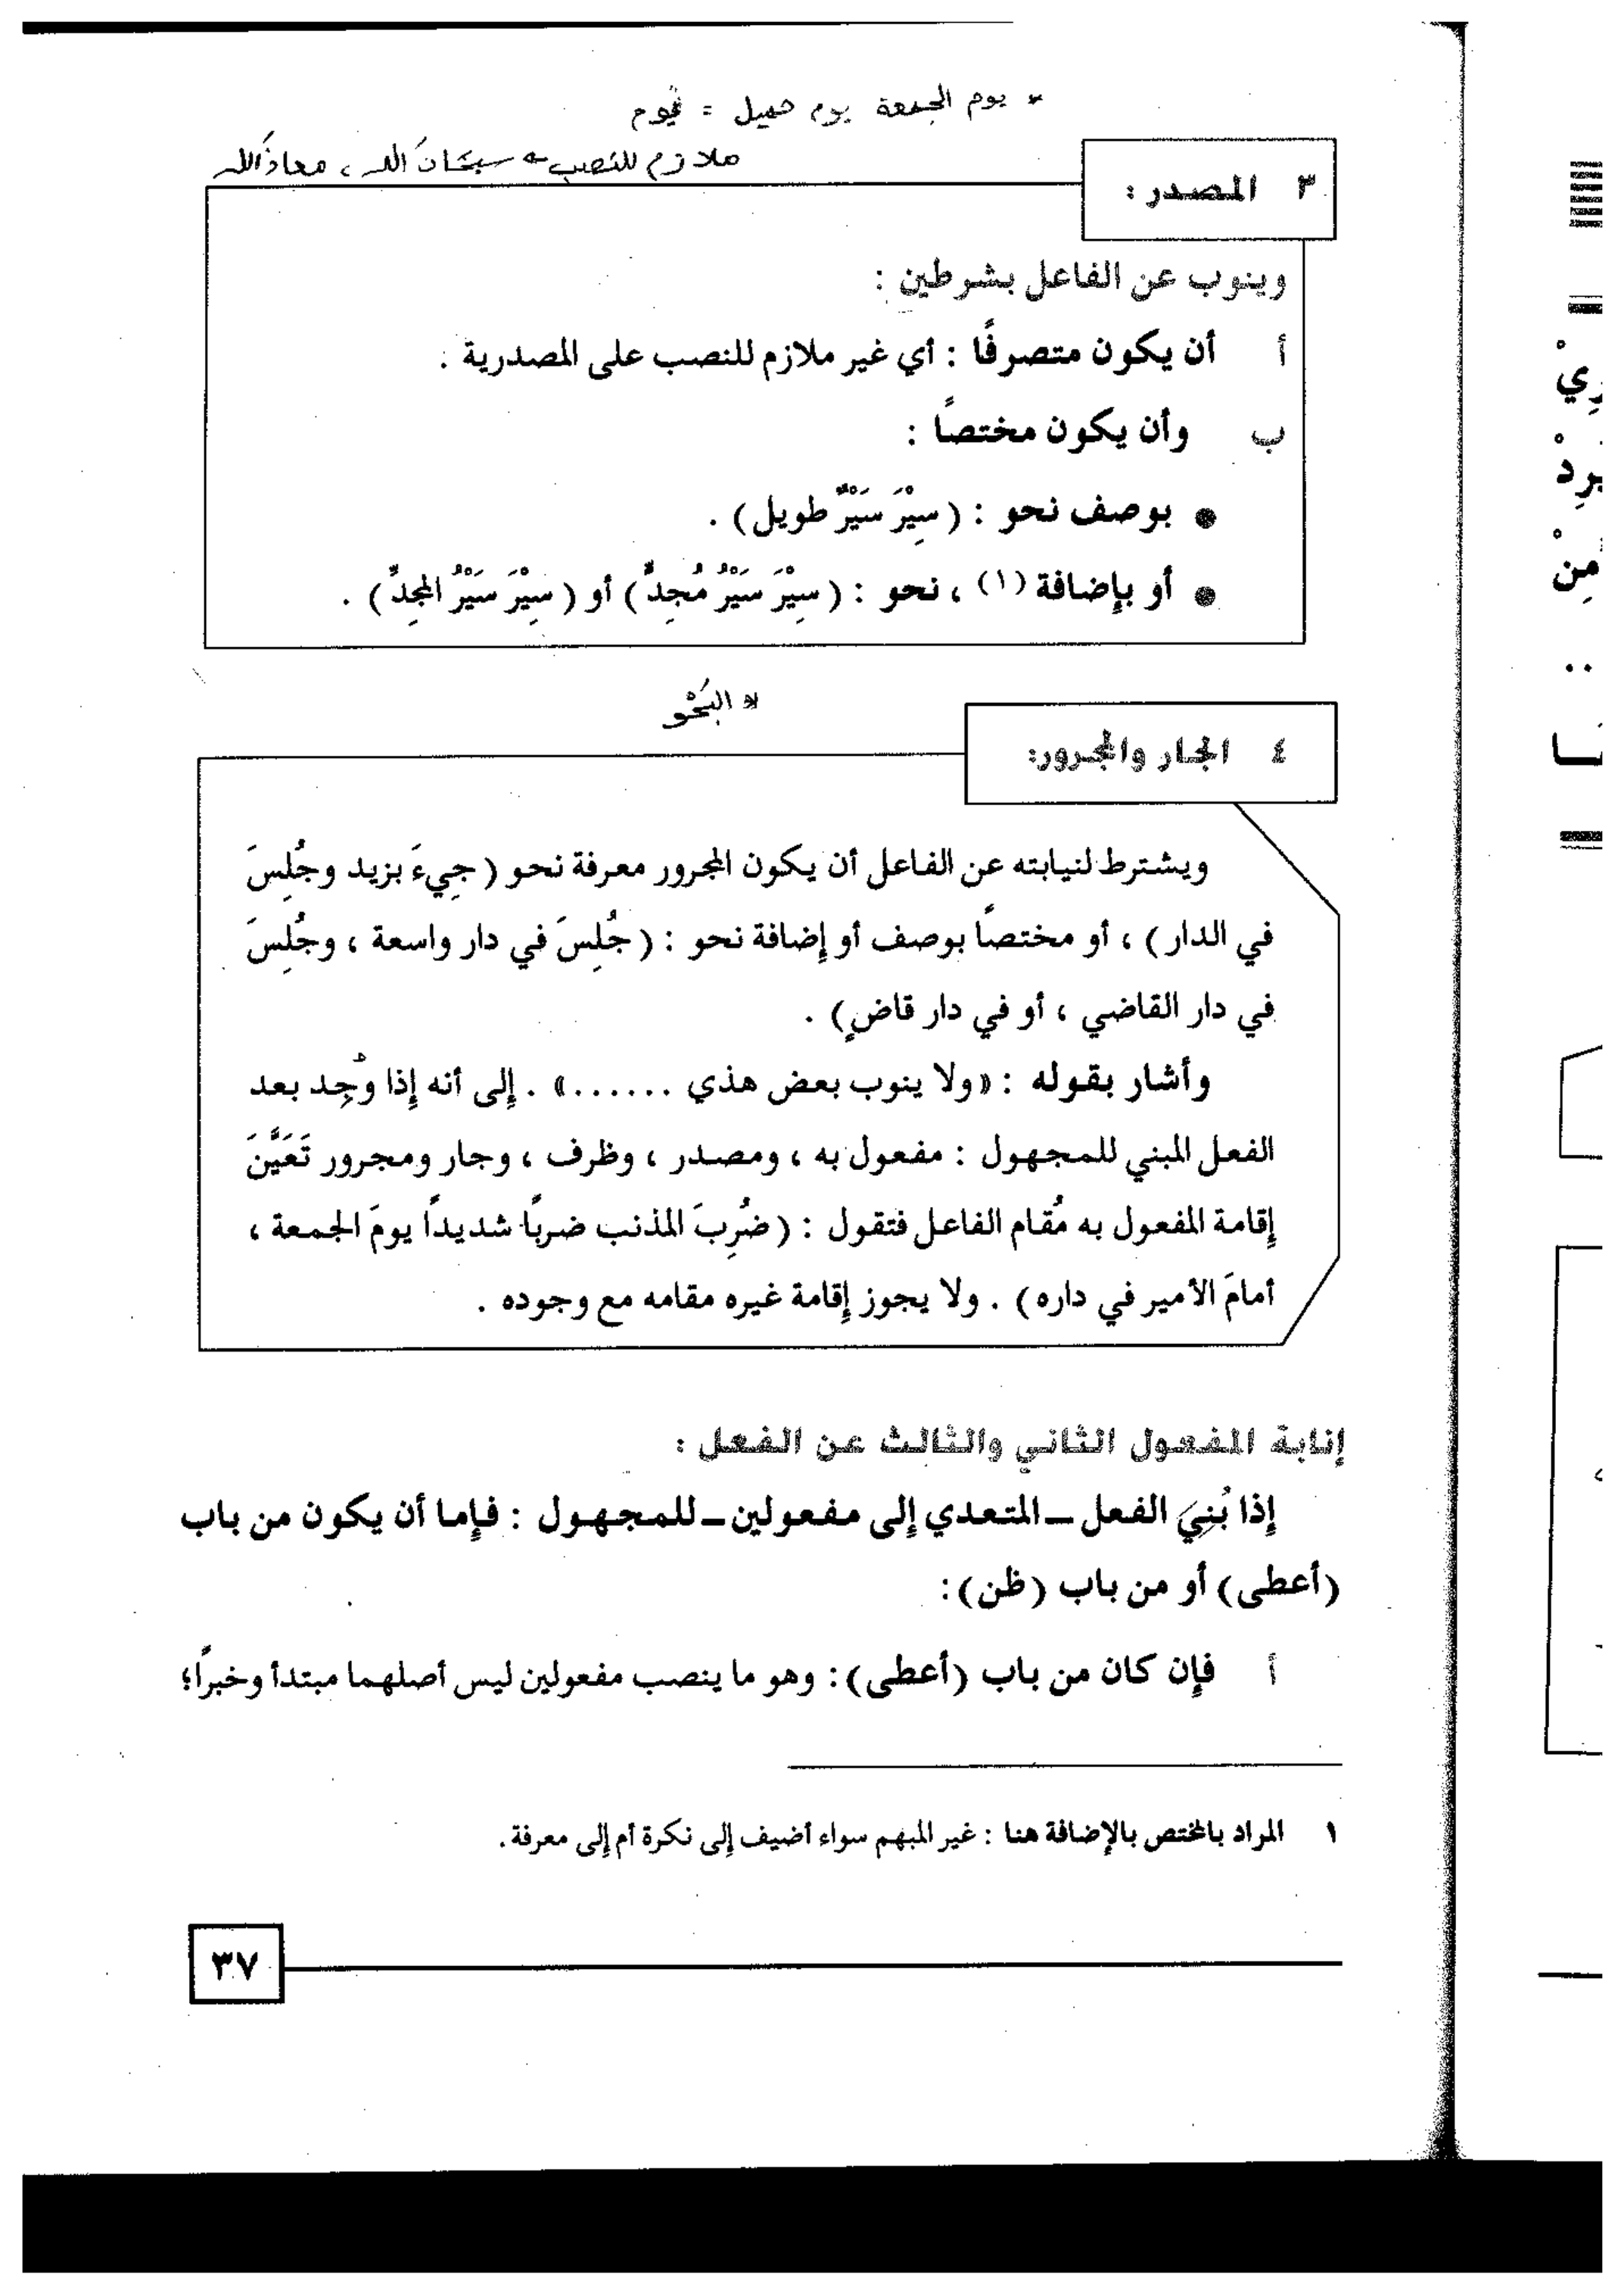 * يوم الجمعة يوم جميل =
ملازم للنصب سبحانَ الله ، معاذَ الله
٣ المصدر :
وينوب عن الفاعل بشرطين :
أ أن يكون متصرفًا : أي غير ملازم للنصب على المصدرية .
ب وأن يكون مختصًا :
● بوصف نحو : (سِيْرَ سَيْرٌ طويل) .
● أو بإضافة (١) ، نحو : (سِيْرَ سَيْرُ مُجِدٍّ) أو (سِيْرَ سَيْرُ المجِدِّ) .
٤ الجار والمجرور:
ويشترط لنيابته عن الفاعل أن يكون المجرور معرفة نحو (جِيءَ بزيد وجُلِسَ
في الدار) ، أو مختصًا بوصف أو إضافة نحو : (جُلِسَ في دار واسعة ، وجُلِسَ
في دار القاضي ، أو في دار قاضٍ) .
وأشار بقوله : «ولا ينوب بعض هذي ......» . إلى أنه إذا وُجِد بعد
الفعل المبني للمجهول : مفعول به ، ومصدر ، وظرف ، وجار ومجرور تَعَيَّنَ
إقامة المفعول به مُقام الفاعل فتقول : (ضُرِبَ المذنب ضربًا شديدًا يومَ الجمعة ،
أمامَ الأمير في داره) . ولا يجوز إقامة غيره مقامه مع وجوده .
إنابة المفعول الثاني والثالث عن الفعل :
إذا بُنِيَ الفعل ــ المتعدي إلى مفعولين ــ للمجهول : فإما أن يكون من باب
(أعطى) أو من باب (ظن):
أ فإن كان من باب (أعطى): وهو ما ينصب مفعولين ليس أصلهما مبتدأ وخبرًا؛
١ المراد بالمختص بالإضافة هنا : غير المبهم سواء أضيف إلى نكرة أم إلى معرفة.
٣٧